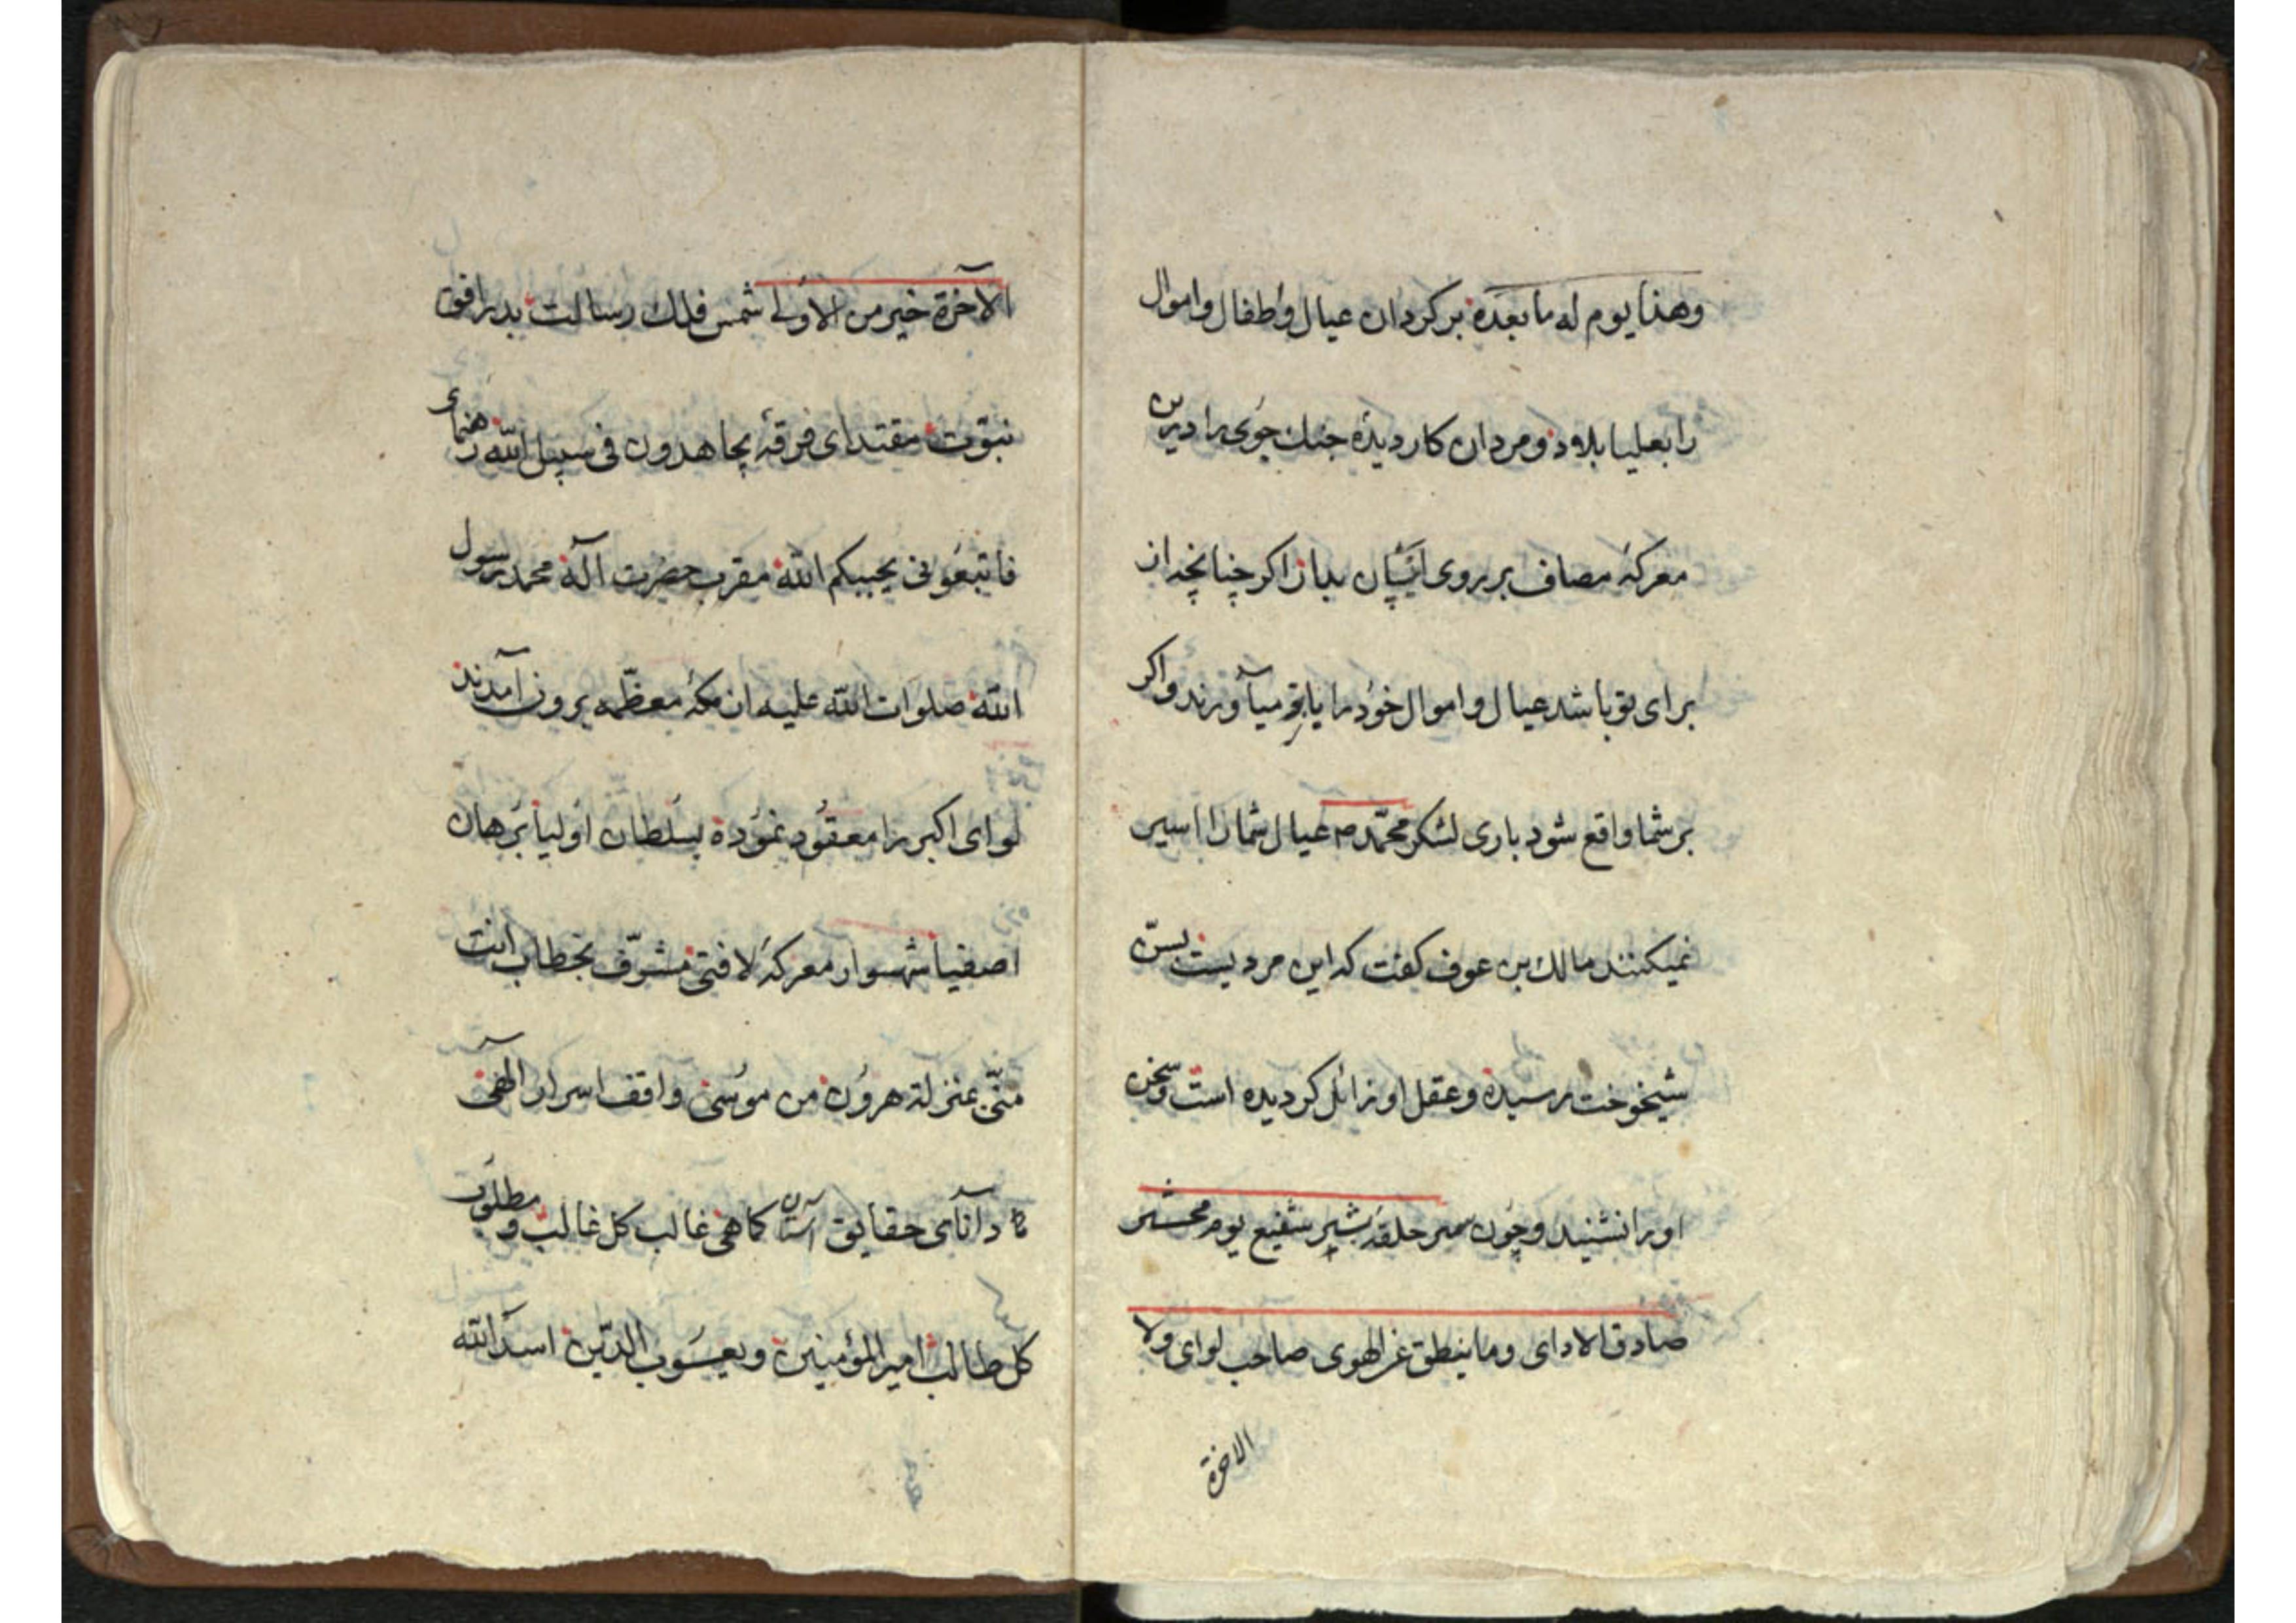 وهذا يوم له ما بعده برکردان عیال و اطفال و اموال
را بعلیا بلاد و مردان کار دیده جنك جوی را درین
معرکهٔ مصاف بر روی ایشان بدار اکر چنانچه از
برای تو باشد عیال و اموال خود را میآورند و اکر
بر شما واقع شود باری لشکر محمّد ص عیال شما را اسیر
نمیکنند مالك بن عوف کفت که این مردیست بسنّ
شیخوخت رسیده و عقل او زائل کردیده است و سخن
او را نشنید و چون سر حلقهٔ بشیر شفیع یوم محشر
صادق الادای وما ینطق عن الهوی صاحب لوای ولا
الاخرة
الآخرة خیر من الاولی شمس فلك رسالت بدر افق
نبوّت مقتدای فرقهٔ یجاهدون فی سبیل الله رهنمای
فاتبعونی یحببکم الله مقرب حضرت آله محمد رسول
الله صلوات الله علیه از مکهٔ معظّمه بیرون آمدند
لوای اکبر را معقود نموده بسلطان اولیا برهان
اصفیا شهسوار معرکهٔ لا فتی مشرّف بخطاب انت
منّی بمنزلة هرون من موسی واقف اسرار الهی
دانآی حقایق کما هی غالب کل غالب و مطلوب
کل طالب امیر المؤمنین و یعسوب الدّین اسد الله